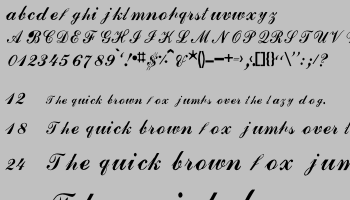 abcdefghijklmnopqrstuvwxyz
ABCDEFGHIJKLMNOPQRSTUVWX
0123456789
12 The quick brown fox jumps over the lazy dog.
18 The quick brown fox jumps over the l
24 The quick brown fox jum